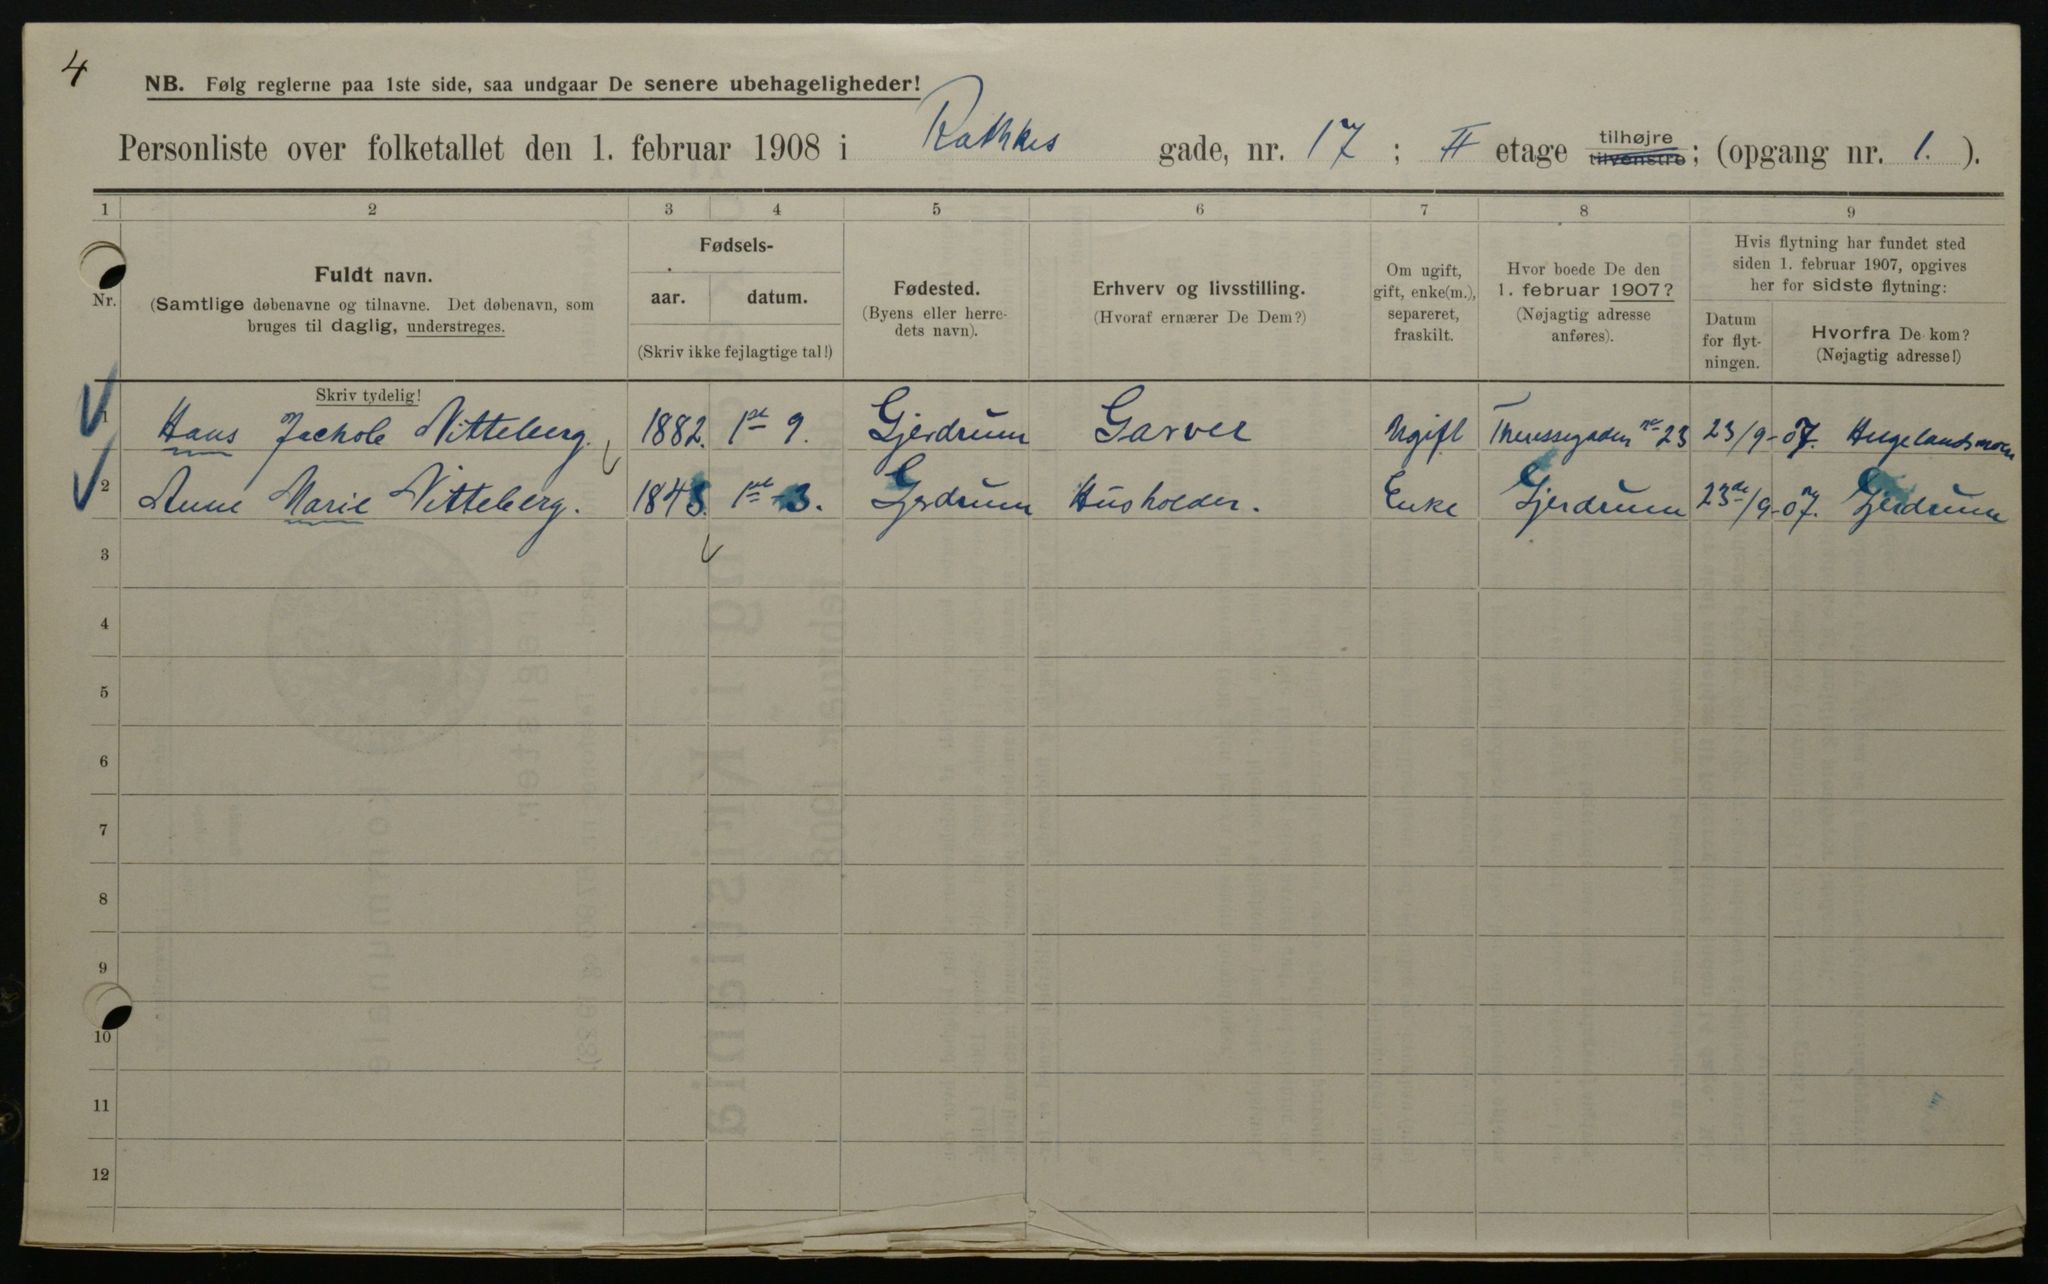 4
NB. Følg reglerne paa 1ste side, saa undgaar De senere ubehageligheder!
Personliste over folketallet den 1. februar 1908 i Rathkes gade, nr. 17 ; II etage tilhøjre tilvenstre; (opgang nr. 1. ).
1 2 3 4 5 6 7 8 9
Nr.
Fuldt navn.
(Samtlige døbenavne og tilnavne. Det døbenavn, som
bruges til daglig, understreges.
Skriv tydelig!
Fødsels-
aar. datum.
(Skriv ikke fejlagtige tal!)
Fødested.
(Byens eller herre-
dets navn).
Erhverv og livsstilling.
(Hvoraf ernærer De Dem?)
Om ugift,
gift, enke(m.),
separeret,
fraskilt.
Hvor boede De den
1. februar 1907?
(Nøjagtig adresse
anføres).
Hvis flytning har fundet sted
siden 1. februar 1907, opgives
her for sidste flytning:
Datum
for flyt-
ningen.
Hvorfra De kom?
(Nøjagtig adresse!)
1 Hans Jachob Nitteberg. 1882. 1ste 9. Gjerdrum Garver Ugift Theressegaden no 23 23/9-07.
2 Anne Marie Nitteberg. 1845. 1ste 3. Gjerdrum Husholder. Enke Gjerdrum 23de/9-07. Gjerdrum
3
4
5
6
7
8
9
10
11
12